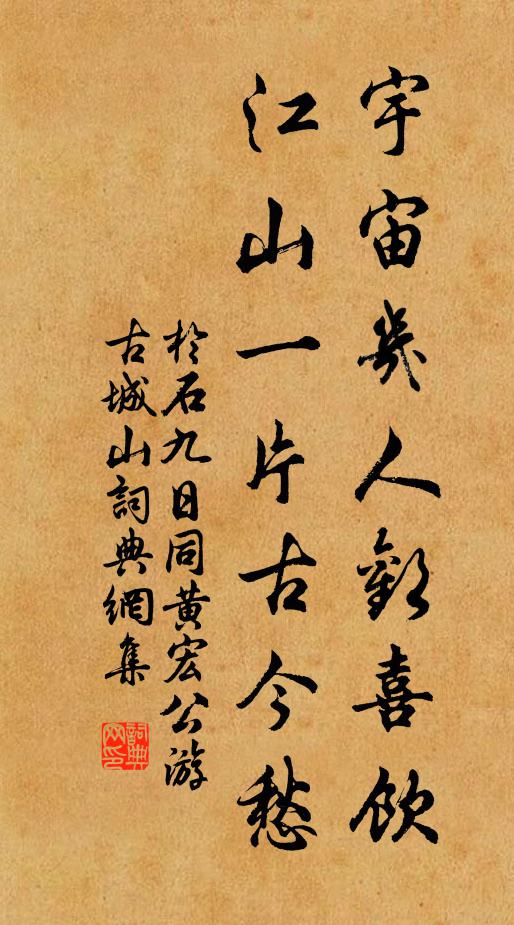 宇宙幾人歡喜飲
江山一片古今愁
於石九日同黄宏公游
古城山詞典網集
詞典
网印